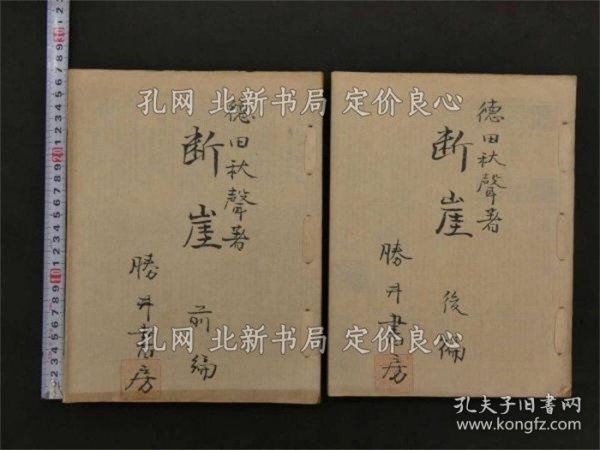 德田秋聲著
断崖
前編
勝井書房
德田秋聲著
断崖
後編
勝井書房
孔网 北新书局 定价良心
孔网 北新书局 定价良心
孔夫子旧书网
www.kongfz.com